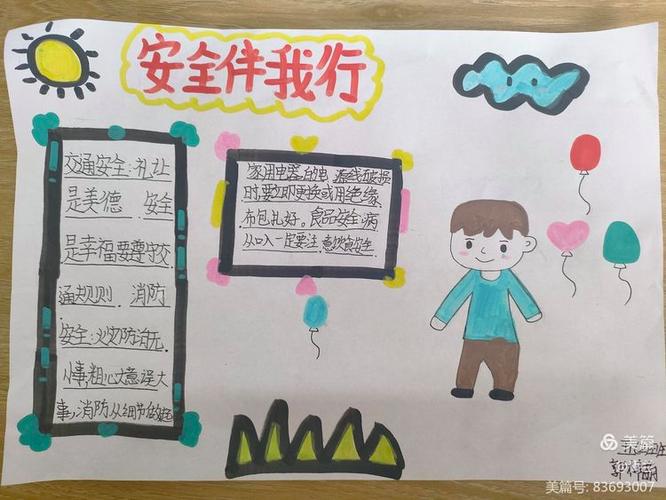 安全伴我行
交通安全:礼让
是美德 安全
是幸福要遵守交
通规则 消防
安全:火灾防范无
小事,粗心大意误大
事,消防从细节做起
家用电器的电源线破损
时要立即更换或用绝缘
布包扎好。食品安全:病
从口入一定要注意饮食安全
美篇
美篇号: 83693007